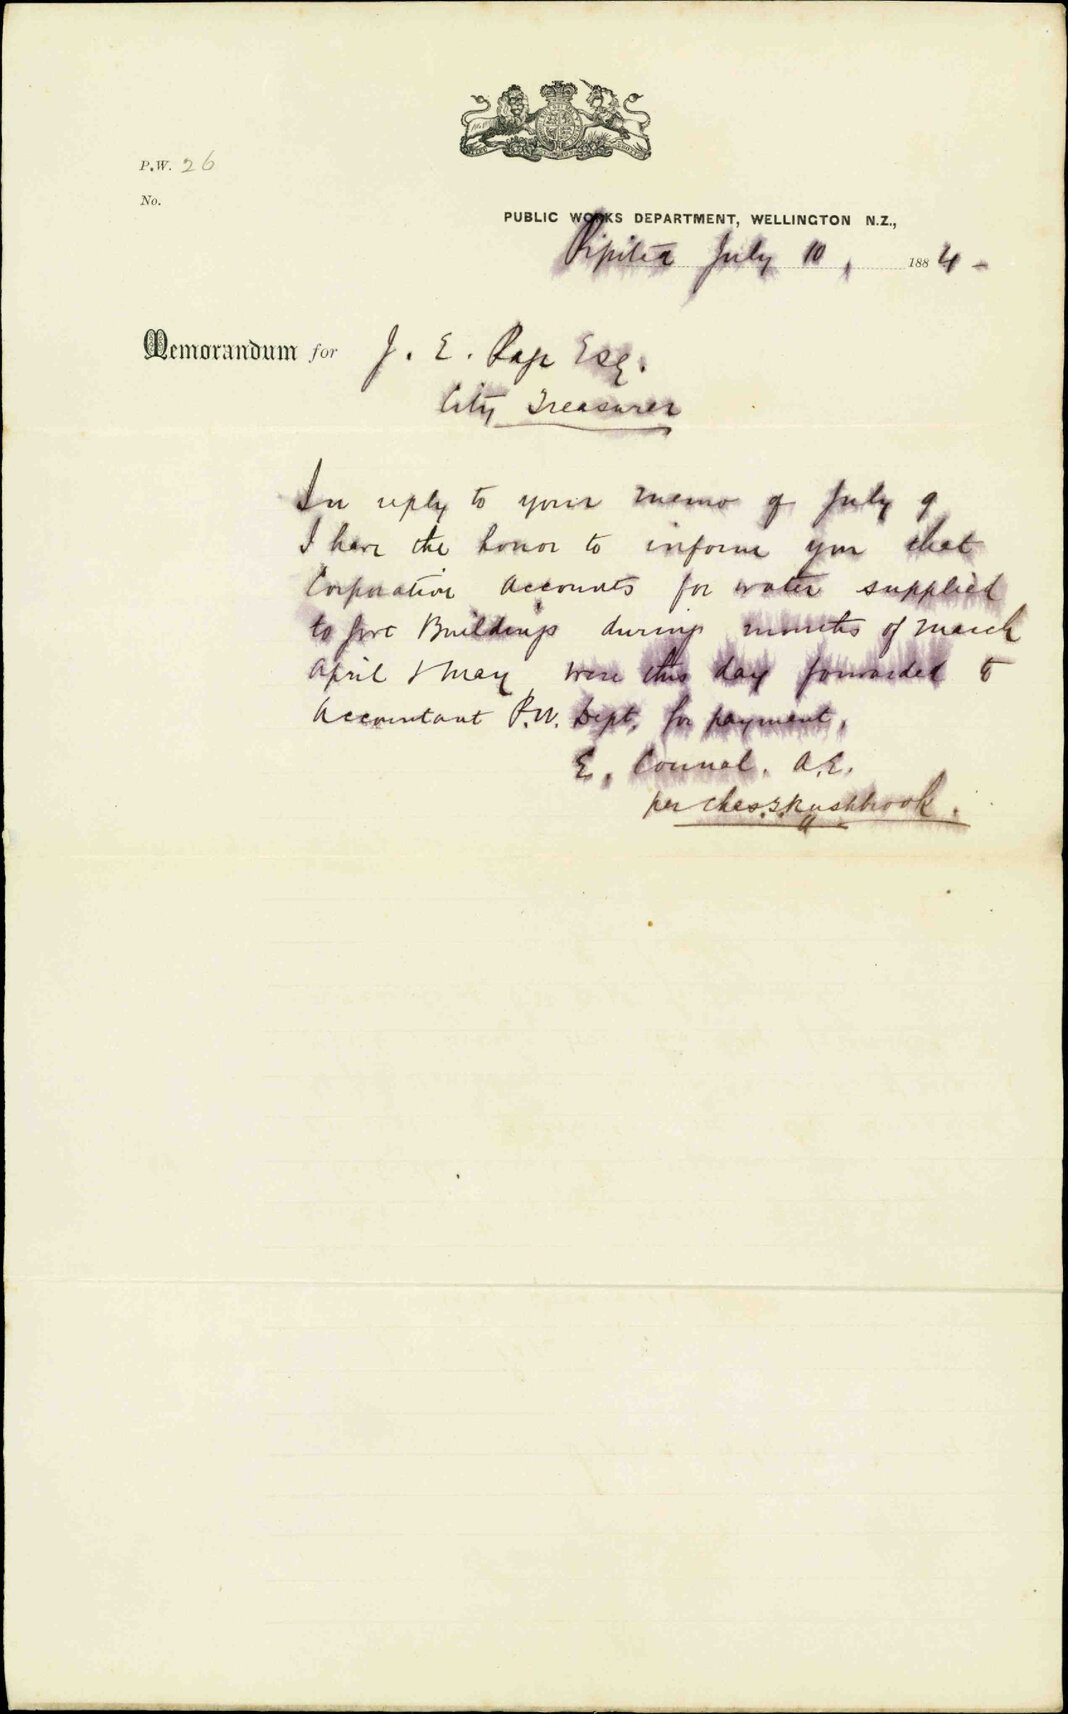 P.W. 26
No.
PUBLIC WORKS DEPARTMENT, WELLINGTON N.Z.,
Pipitea July 10, 1884 -
Memorandum for J. E. Page Esq.
City Treasurer
In reply to your memo of July 9
I have the honor to inform you that
Corporation Accounts for water supplied
to Govt Buildings during months of March
April & May were this day forwarded to
Accountant P.W. Dept. for payment.
E. Counal. A.E.
per Chas. Rushbrook.